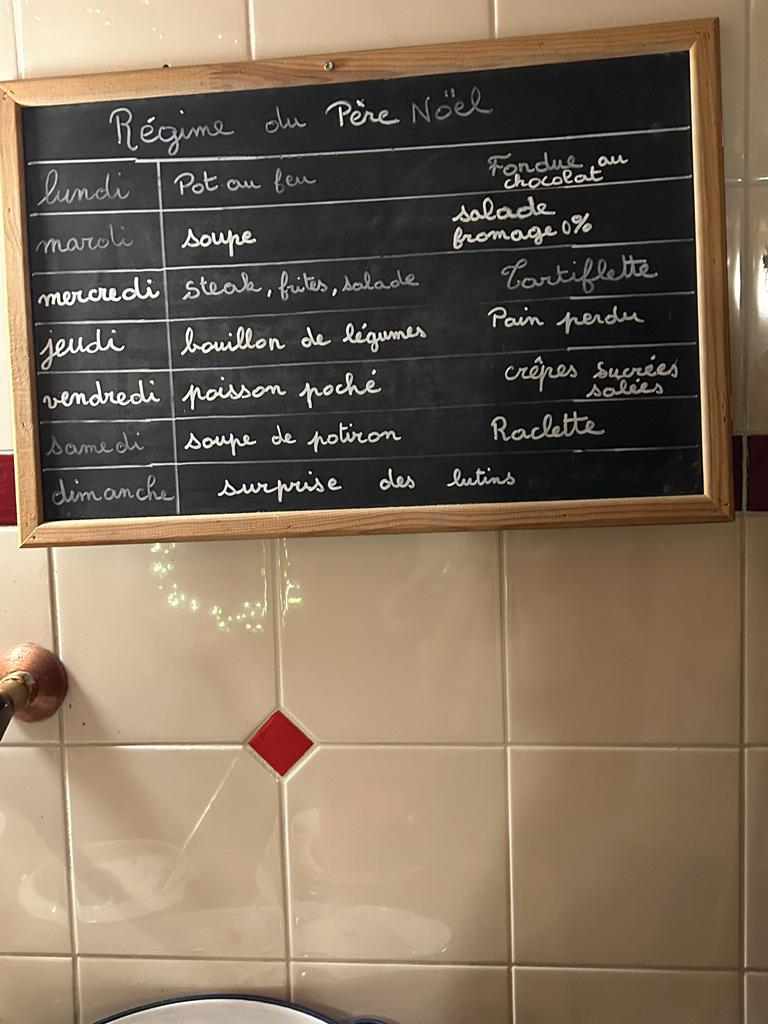 Régime du Père Noël
lundi Pot au feu Fondue au chocolat
mardi soupe salade fromage 0%
mercredi steak, frites, salade Tartiflette
jeudi bouillon de légumes Pain perdu
vendredi poisson poché crêpes sucrées salées
samedi soupe de potiron Raclette
dimanche surprise des lutins